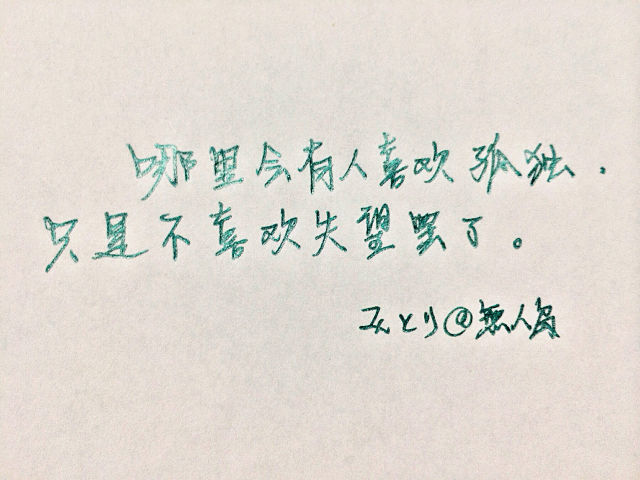 哪里会有人喜欢孤独.
只是不喜欢失望罢了。
みとり@無人島